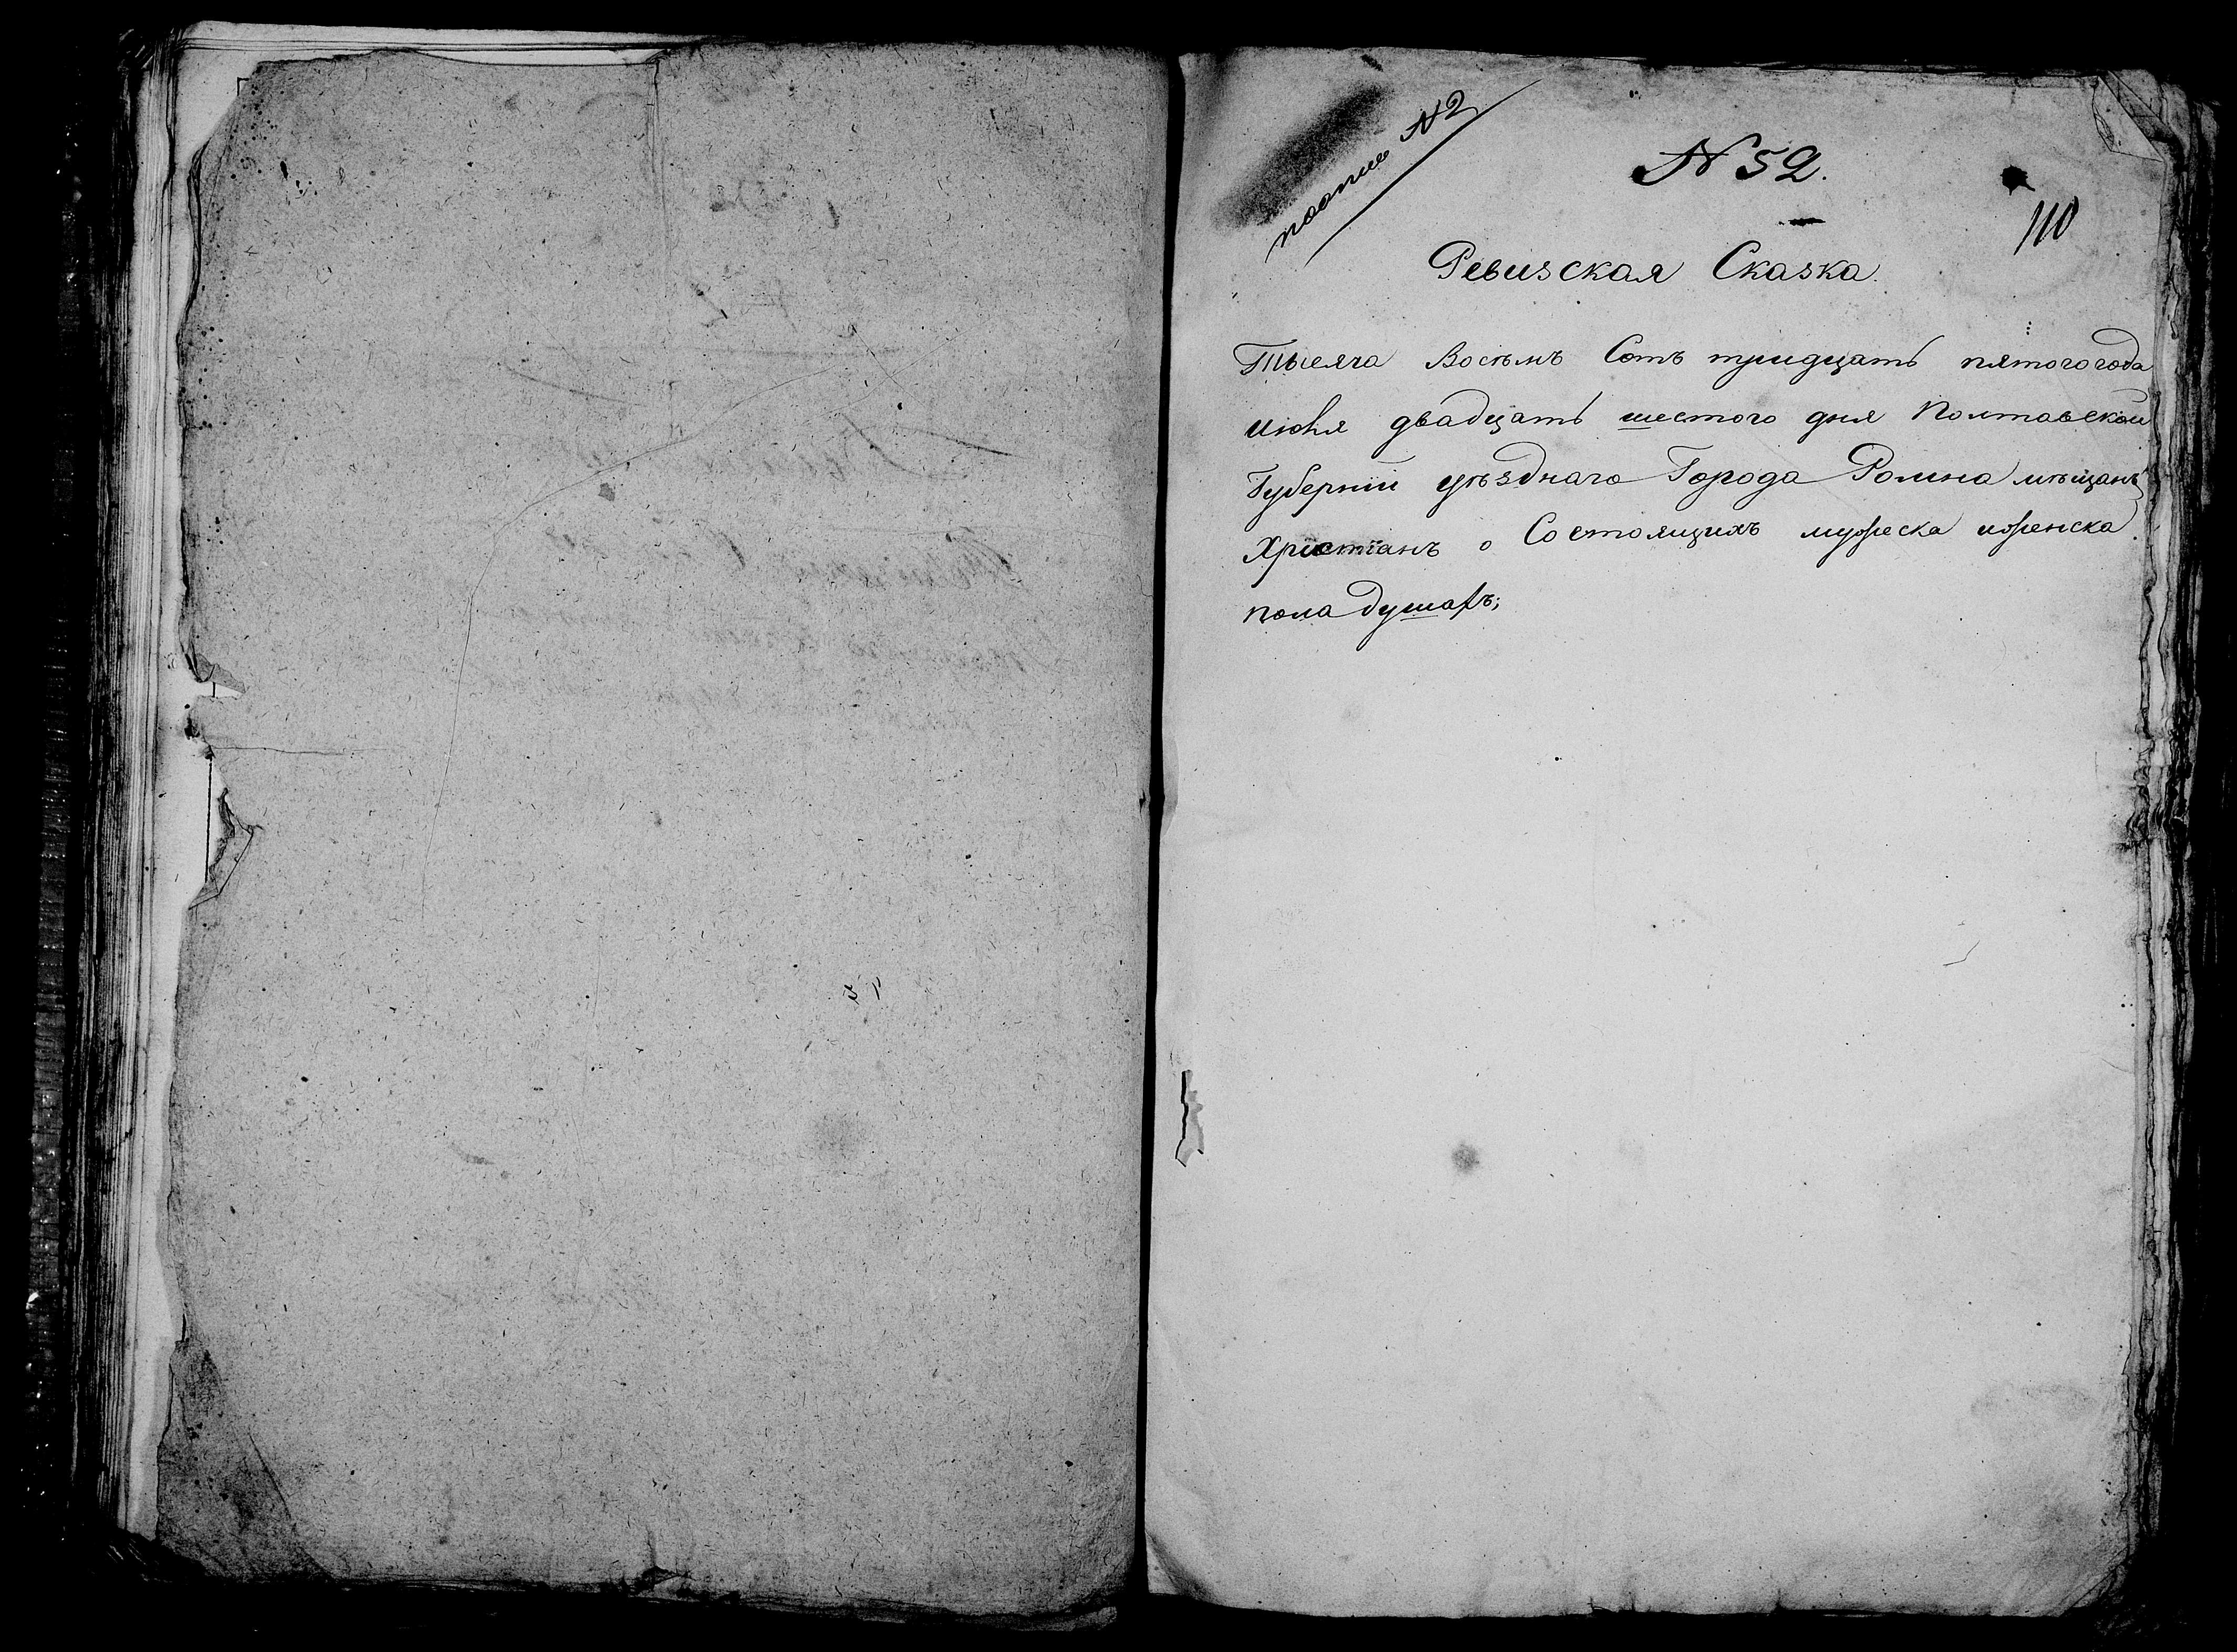 № 2
№ 52.
110
Ревизская Сказка.
Тысяча Восѣмъ Сотъ тридцать пятого года
июня двадцать шестого дня Полтавской
Губернїи уѣзднаго Города Ромна мѣщанъ
Христїанъ о Состоящихъ мужеска иженска
пола душахъ;